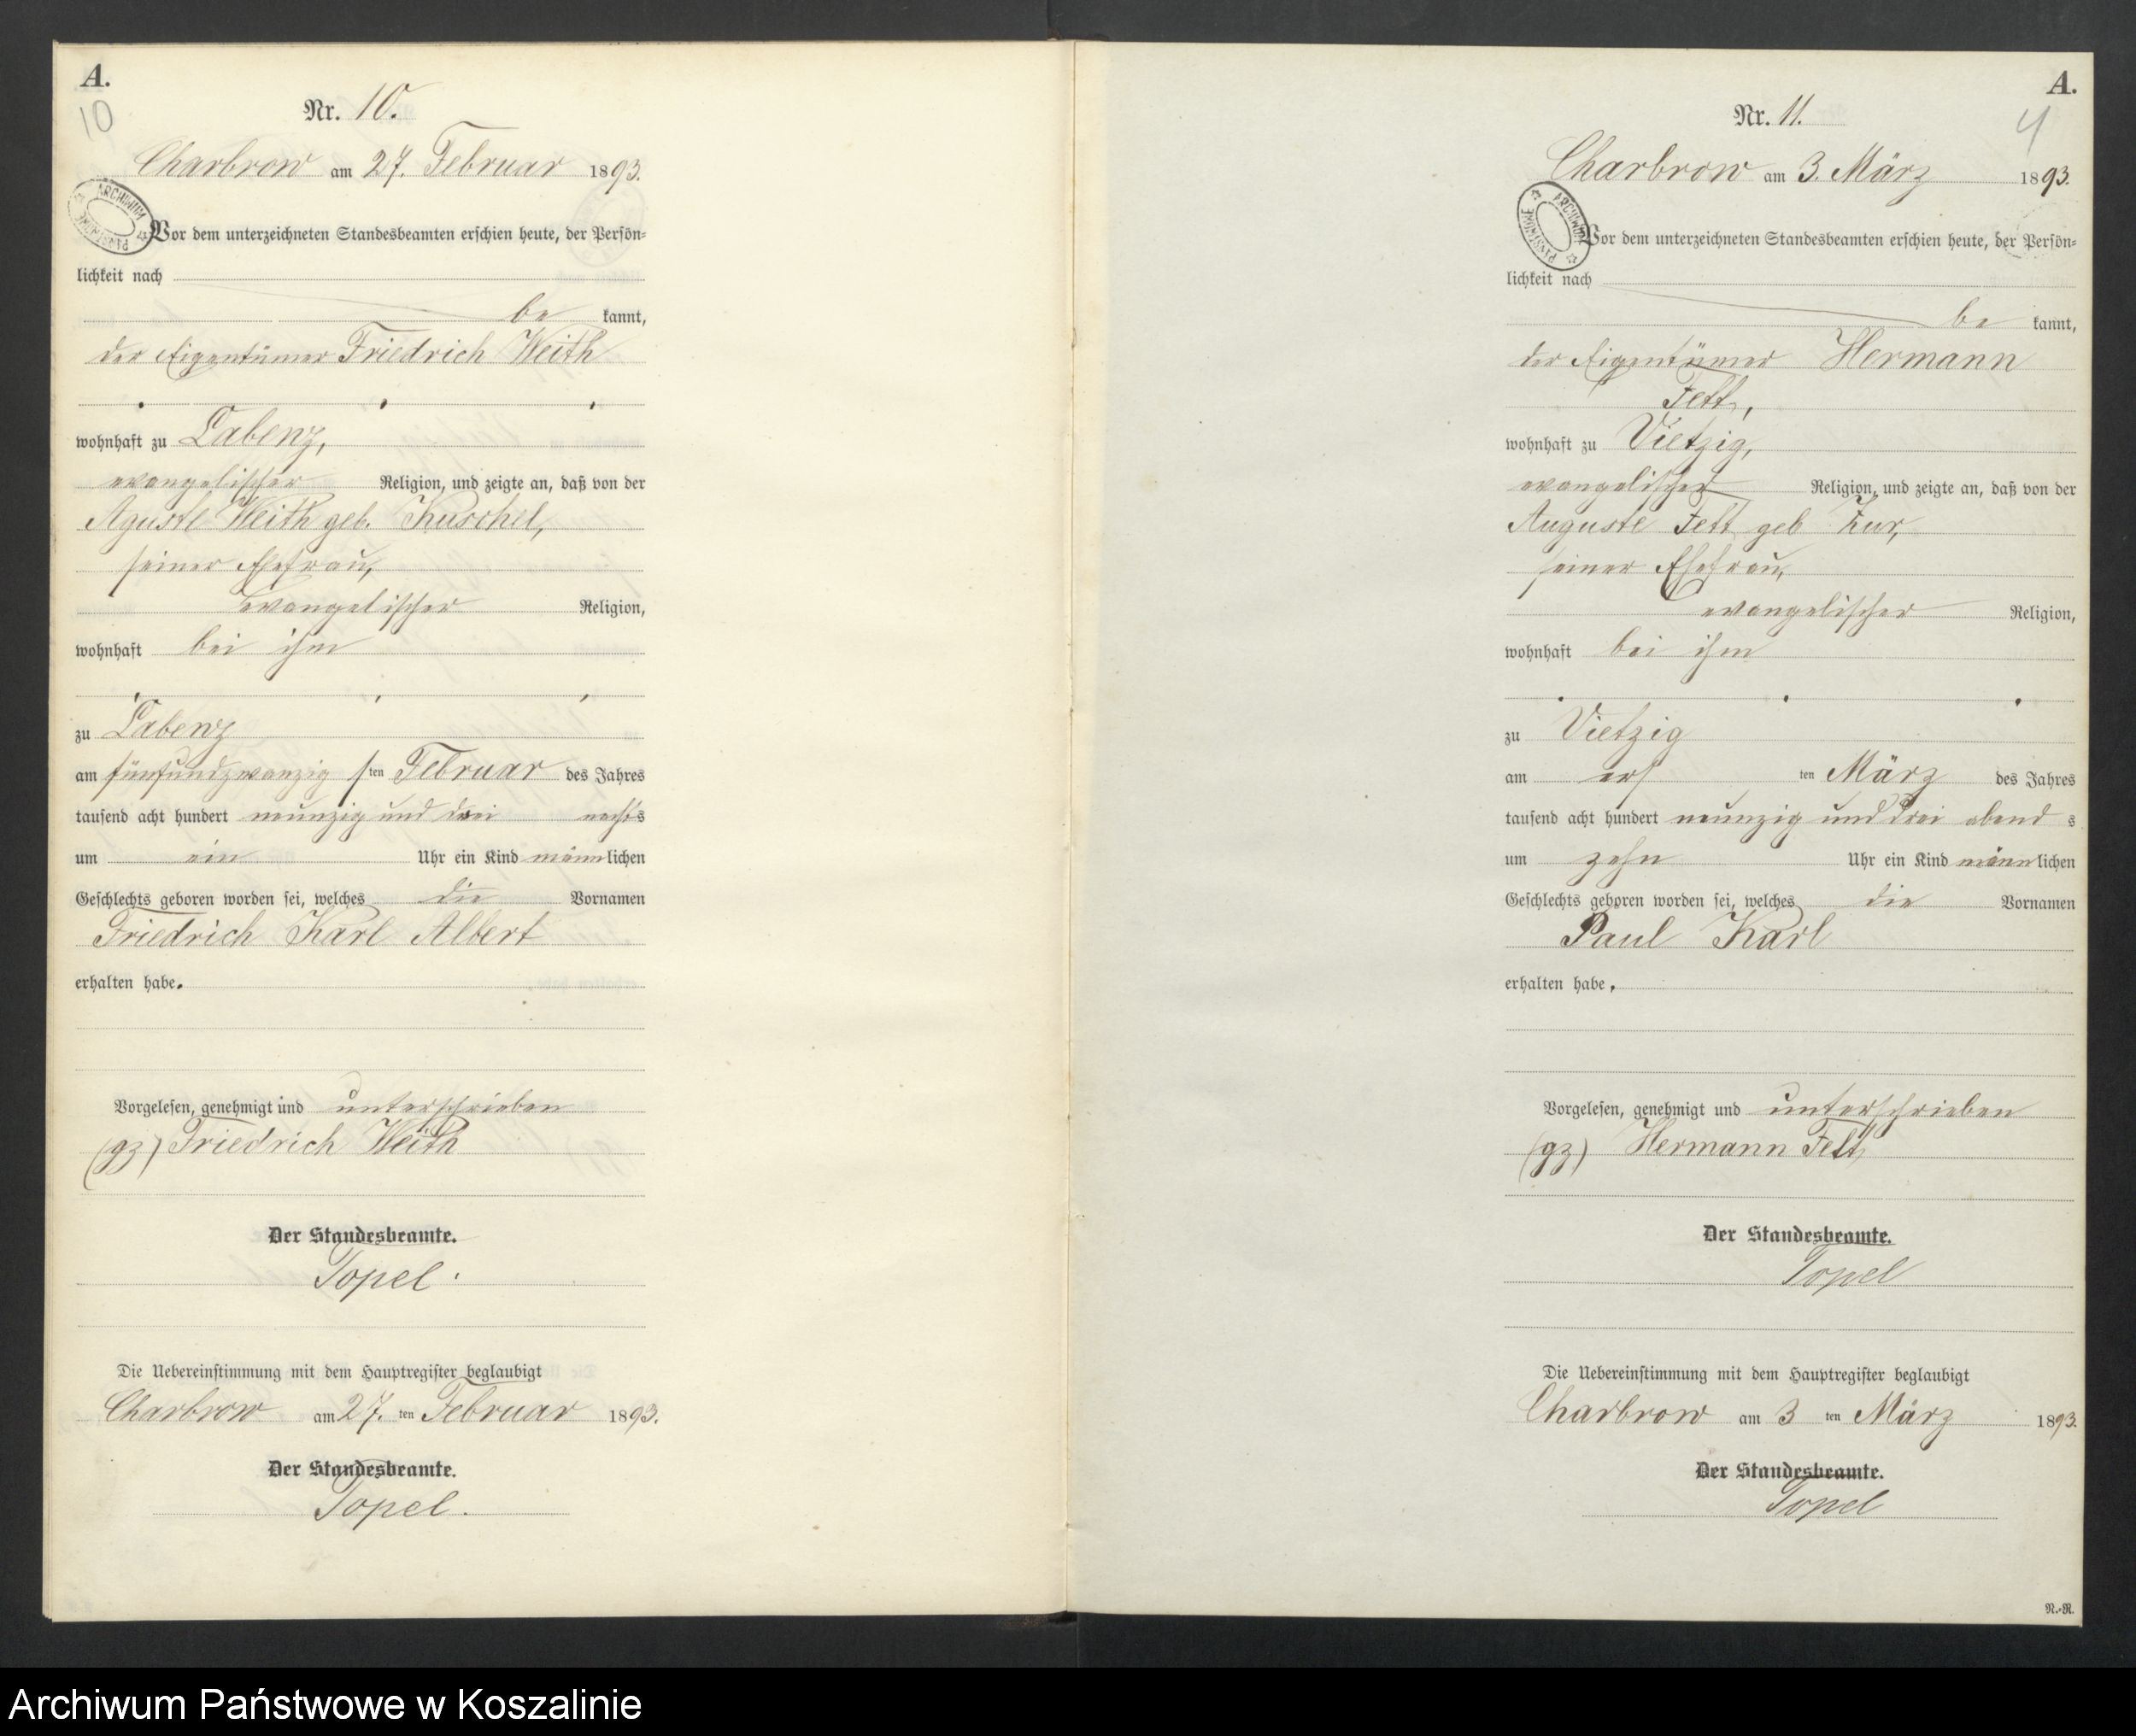 A.
10
Nr. 10.
Charbrow am 27. Februar 1893.
ARCHIWUM PAŃSTWOWE
Vor dem unterzeichneten Standesbeamten erschien heute, der Persön-
lichkeit nach
be kannt,
der Eigentümer Friedrich Weith
wohnhaft zu Labenz,
evangelischer Religion, und zeigte an, daß von der
Aguste Weith geb. Kuschel,
seiner Ehefrau,
evangelischer Religion,
wohnhaft bei ihm
zu Labenz
am fünfundzwanzig sten Februar des Jahres
tausend acht hundert neunzig und drei nachts
um ein Uhr ein Kind männlichen
Geschlechts geboren worden sei, welches die Vornamen
Friedrich Karl Albert
erhalten habe.
Vorgelesen, genehmigt und unterschrieben
(gz) Friedrich Weith
Der Standesbeamte.
Topel.
Die Uebereinstimmung mit dem Hauptregister beglaubigt
Charbrow am 27. ten Februar 1893.
Der Standesbeamte.
Topel.
A.
4
Nr. 11.
Charbrow am 3. März 1893.
ARCHIWUM PAŃSTWOWE
Vor dem unterzeichneten Standesbeamten erschien heute, der Persön-
lichkeit nach
be kannt,
der Eigentümer Hermann
Fett,
wohnhaft zu Vietzig,
evangelischer Religion, und zeigte an, daß von der
Auguste Fett geb Zur,
seiner Ehefrau,
evangelischer Religion,
wohnhaft bei ihm
zu Vietzig
am ers ten März des Jahres
tausend acht hundert neunzig und drei abend s
um zehn Uhr ein Kind männlichen
Geschlechts geboren worden sei, welches die Vornamen
Paul Karl
erhalten habe.
Vorgelesen, genehmigt und unterschrieben
(gz) Hermann Fett
Der Standesbeamte.
Topel
Die Uebereinstimmung mit dem Hauptregister beglaubigt
Charbrow am 3 ten März 1893.
Der Standesbeamte.
Topel
N.-R.
Archiwum Państwowe w Koszalinie